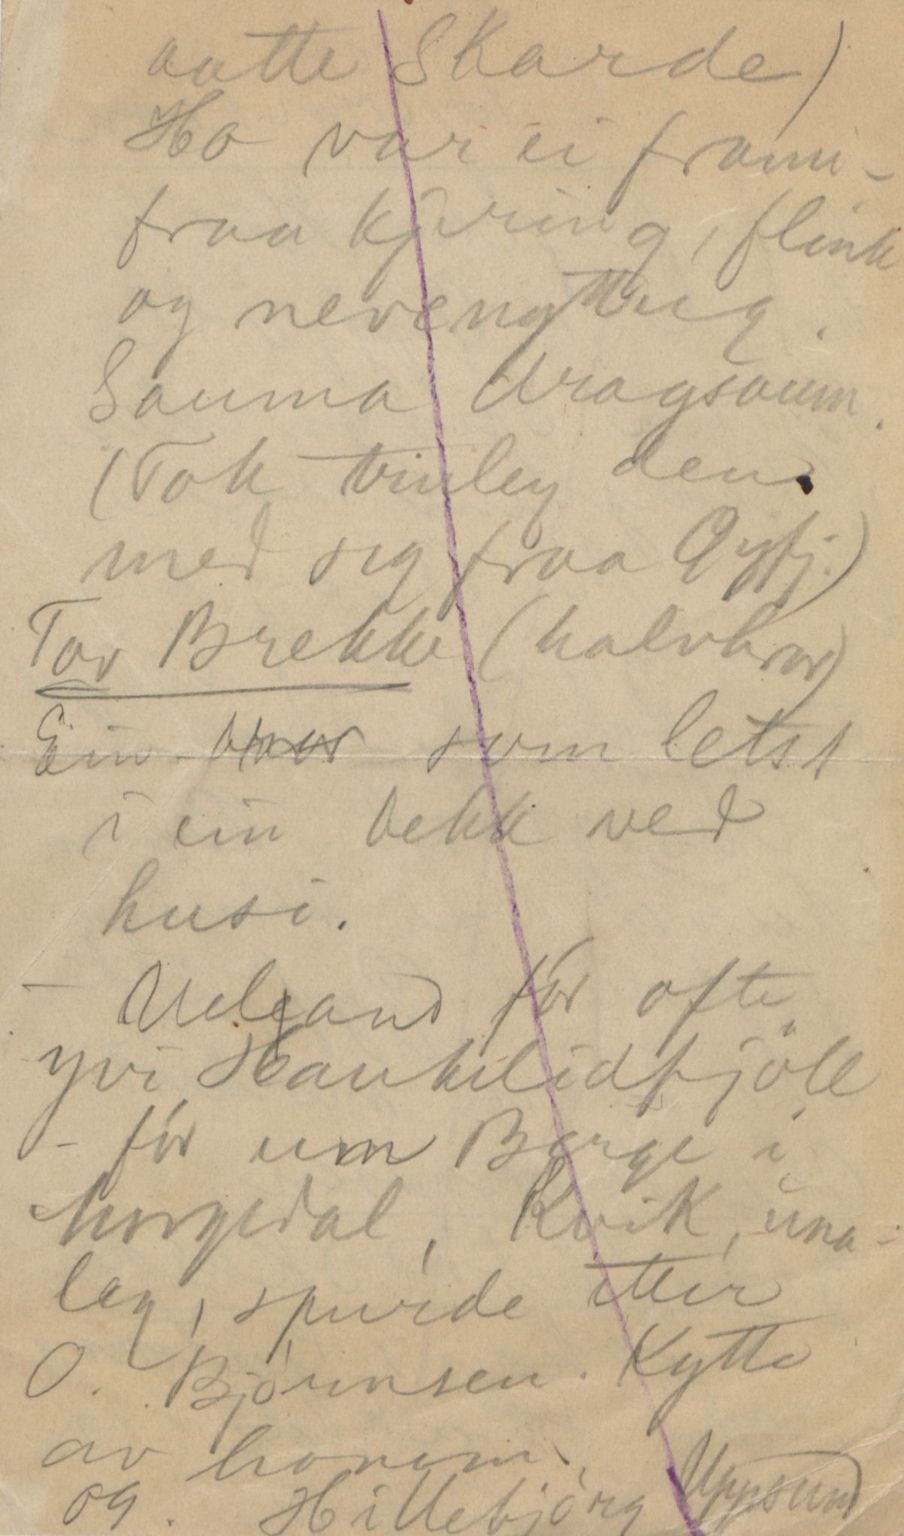 aatte Skarde)
Ho var ei frami-
fraa kjering, flink
og nevenyttug.
Sauma dragsaum.
(Tok truleg den
med seg fraa Øyfj.)
Tov Brekke (halvbror)
Ein som letst
i ein bekk ved
husi.
- Uelgand fór ofte
yvi Haukelidfjöll
- fór um Berge i
morgedal, Kvik, una-
leg, spurde etter
O. Bjørnsen. Kytte
av honom.
og. Hillebjörg Uppsund